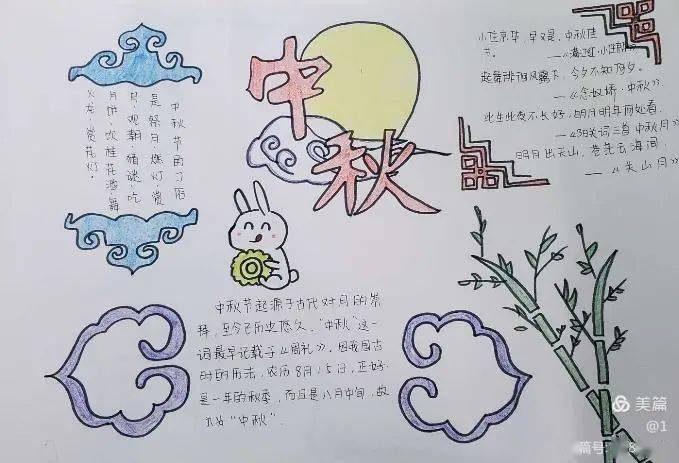 中秋
中秋节的习俗
是祭月、燃灯、赏
月、观潮、猜谜、吃
月饼、饮桂花酒、舞
火龙、赏花灯。
小住京华，早又是，中秋佳
节。
起舞徘徊风露下，今夕不知何夕。
——《念奴娇·中秋》
此生此夜不长好，明月明年何处看。
——《阳关词三首 中秋月》
明月出天山，苍茫云海间
——《关山月》
中秋节起源于古代对月的崇
拜，至今已历史悠久。“中秋”这一
词最早记载于《周礼》。因我国古
时的历法，农历8月15日，正好
是一年的秋季，而且是八月中间，故
“中秋”.
美篇
@1
篇号
8